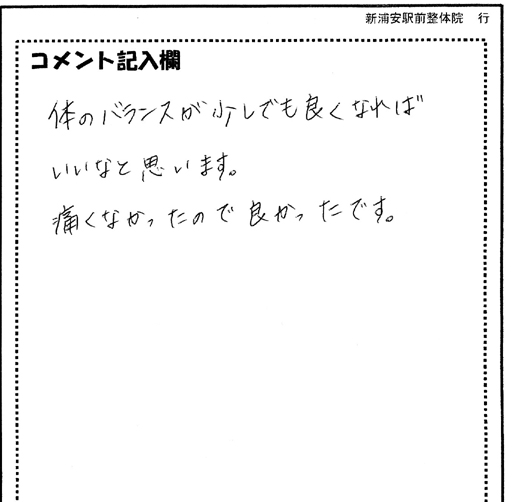 新浦安駅前整体院　行
コメント記入欄
体のバランスが少しでも良くなれば
いいなと思います。
痛くなかったので良かったです。